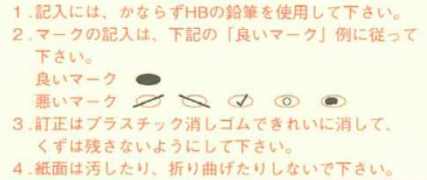 1.記入には、かならずHBの鉛筆を使用して下さい。
2.マークの記入は、下記の「良いマーク」例に従って
下さい。
良いマーク
悪いマーク
3.訂正はプラスチック消しゴムできれいに消して、
くずは残さないようにして下さい。
4.紙面は汚したり、折り曲げたりしないで下さい。